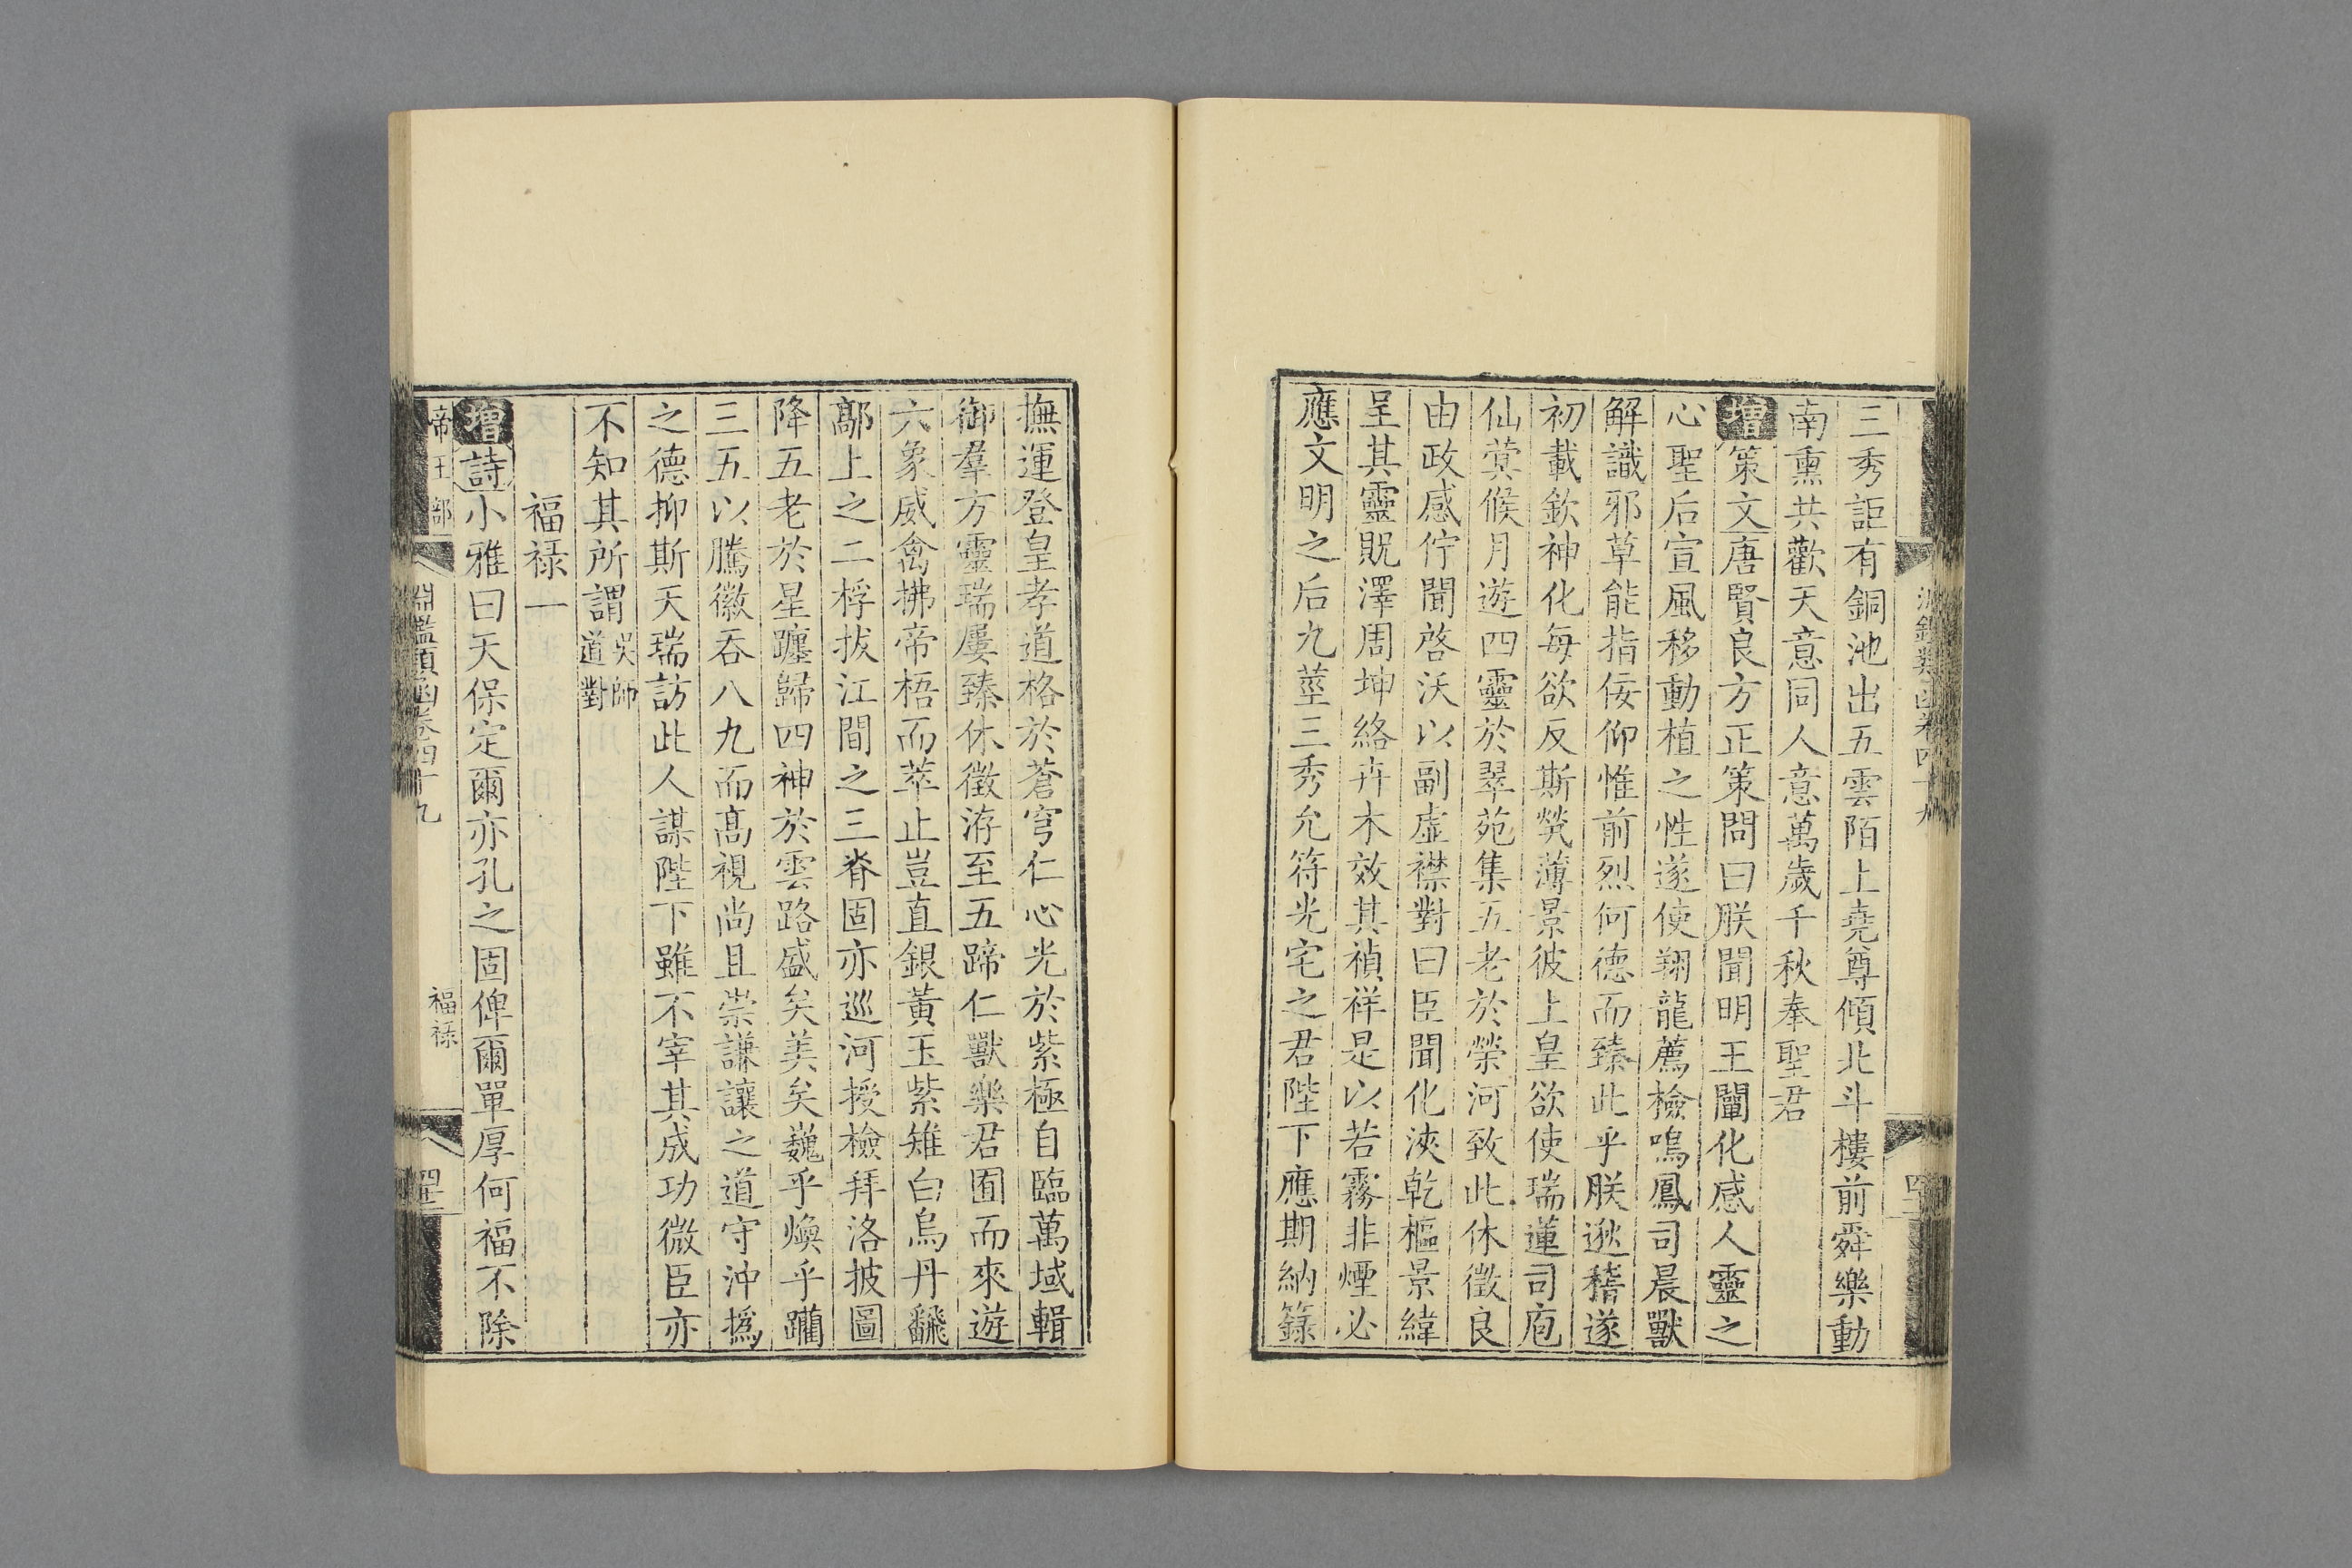 三秀詎有銅池出五雲陌上堯尊傾北斗樓前舜樂動
南熏共歡天意同人意萬歲千秋奉聖君
增策文唐賢良方正策問曰朕聞明王闡化感人靈之
心聖后宣風移動植之性遂使翔龍薦檢鳴鳳司晨獸
解識邪草能指佞仰惟前烈何德而臻此乎朕逖稽遂
初載欽神化每欲反斯焭薄景彼上皇欲使瑞蓮司庖
仙蓂候月遊四靈於翠苑集五老於榮河致此休徵良
由政感佇聞啓沃以副虛襟對曰臣聞化浹乾樞景緯
呈其靈貺澤周坤絡卉木效其禎祥是以若霧非煙必
應文明之后九莖三秀允符光宅之君陛下應期納籙
撫運登皇孝道格於蒼穹仁心光於紫極自臨萬域輯
御羣方靈瑞屢臻休徵洊至五蹄仁獸樂君囿而來遊
六象威禽拂帝梧而萃止豈直銀黃玉紫雉白烏丹飜
鄗上之二桴拔江間之三脊固亦巡河授檢拜洛披圖
降五老於星躔歸四神於雲路盛矣美矣巍乎煥乎躪
三五以騰徽吞八九而高視尚且崇謙讓之道守沖撝
之德抑斯天瑞訪此人謀陛下雖不宰其成功微臣亦
不知其所謂吳師道對
福祿一
增詩小雅曰天保定爾亦孔之固俾爾單厚何福不除
帝王部 淵鑑類函卷四十九 福祿